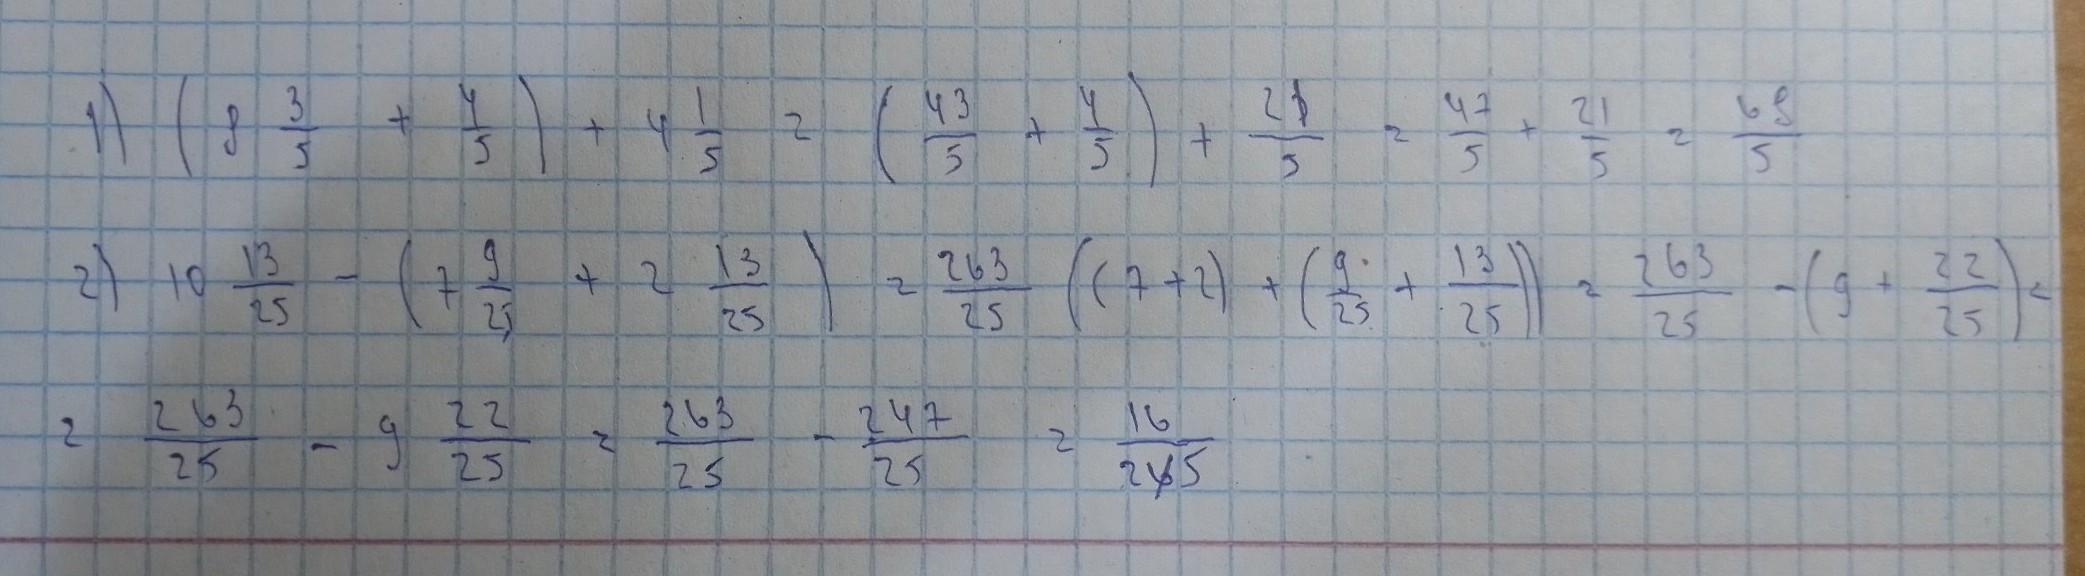 1) (8 3/5 + 4/5) + 4 1/5 = (43/5 + 4/5) + 21/5 = 47/5 + 21/5 = 68/5
2) 10 13/25 - (7 9/25 + 2 13/25) = 263/25 ((7+2) + (9/25 + 13/25)) = 263/25 - (9 + 22/25) =
= 263/25 - 9 22/25 = 263/25 - 247/25 = 16/25